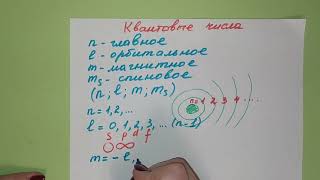 Квантовые числа
n - главное
l - орбитальное
m - магнитное
ms - спиновое
(n; l; m; ms)
n = 1, 2, ...
n= 1 2 3 4 ....
l = 0, 1, 2, 3, ... (n-1)
s p d f
m = - l,